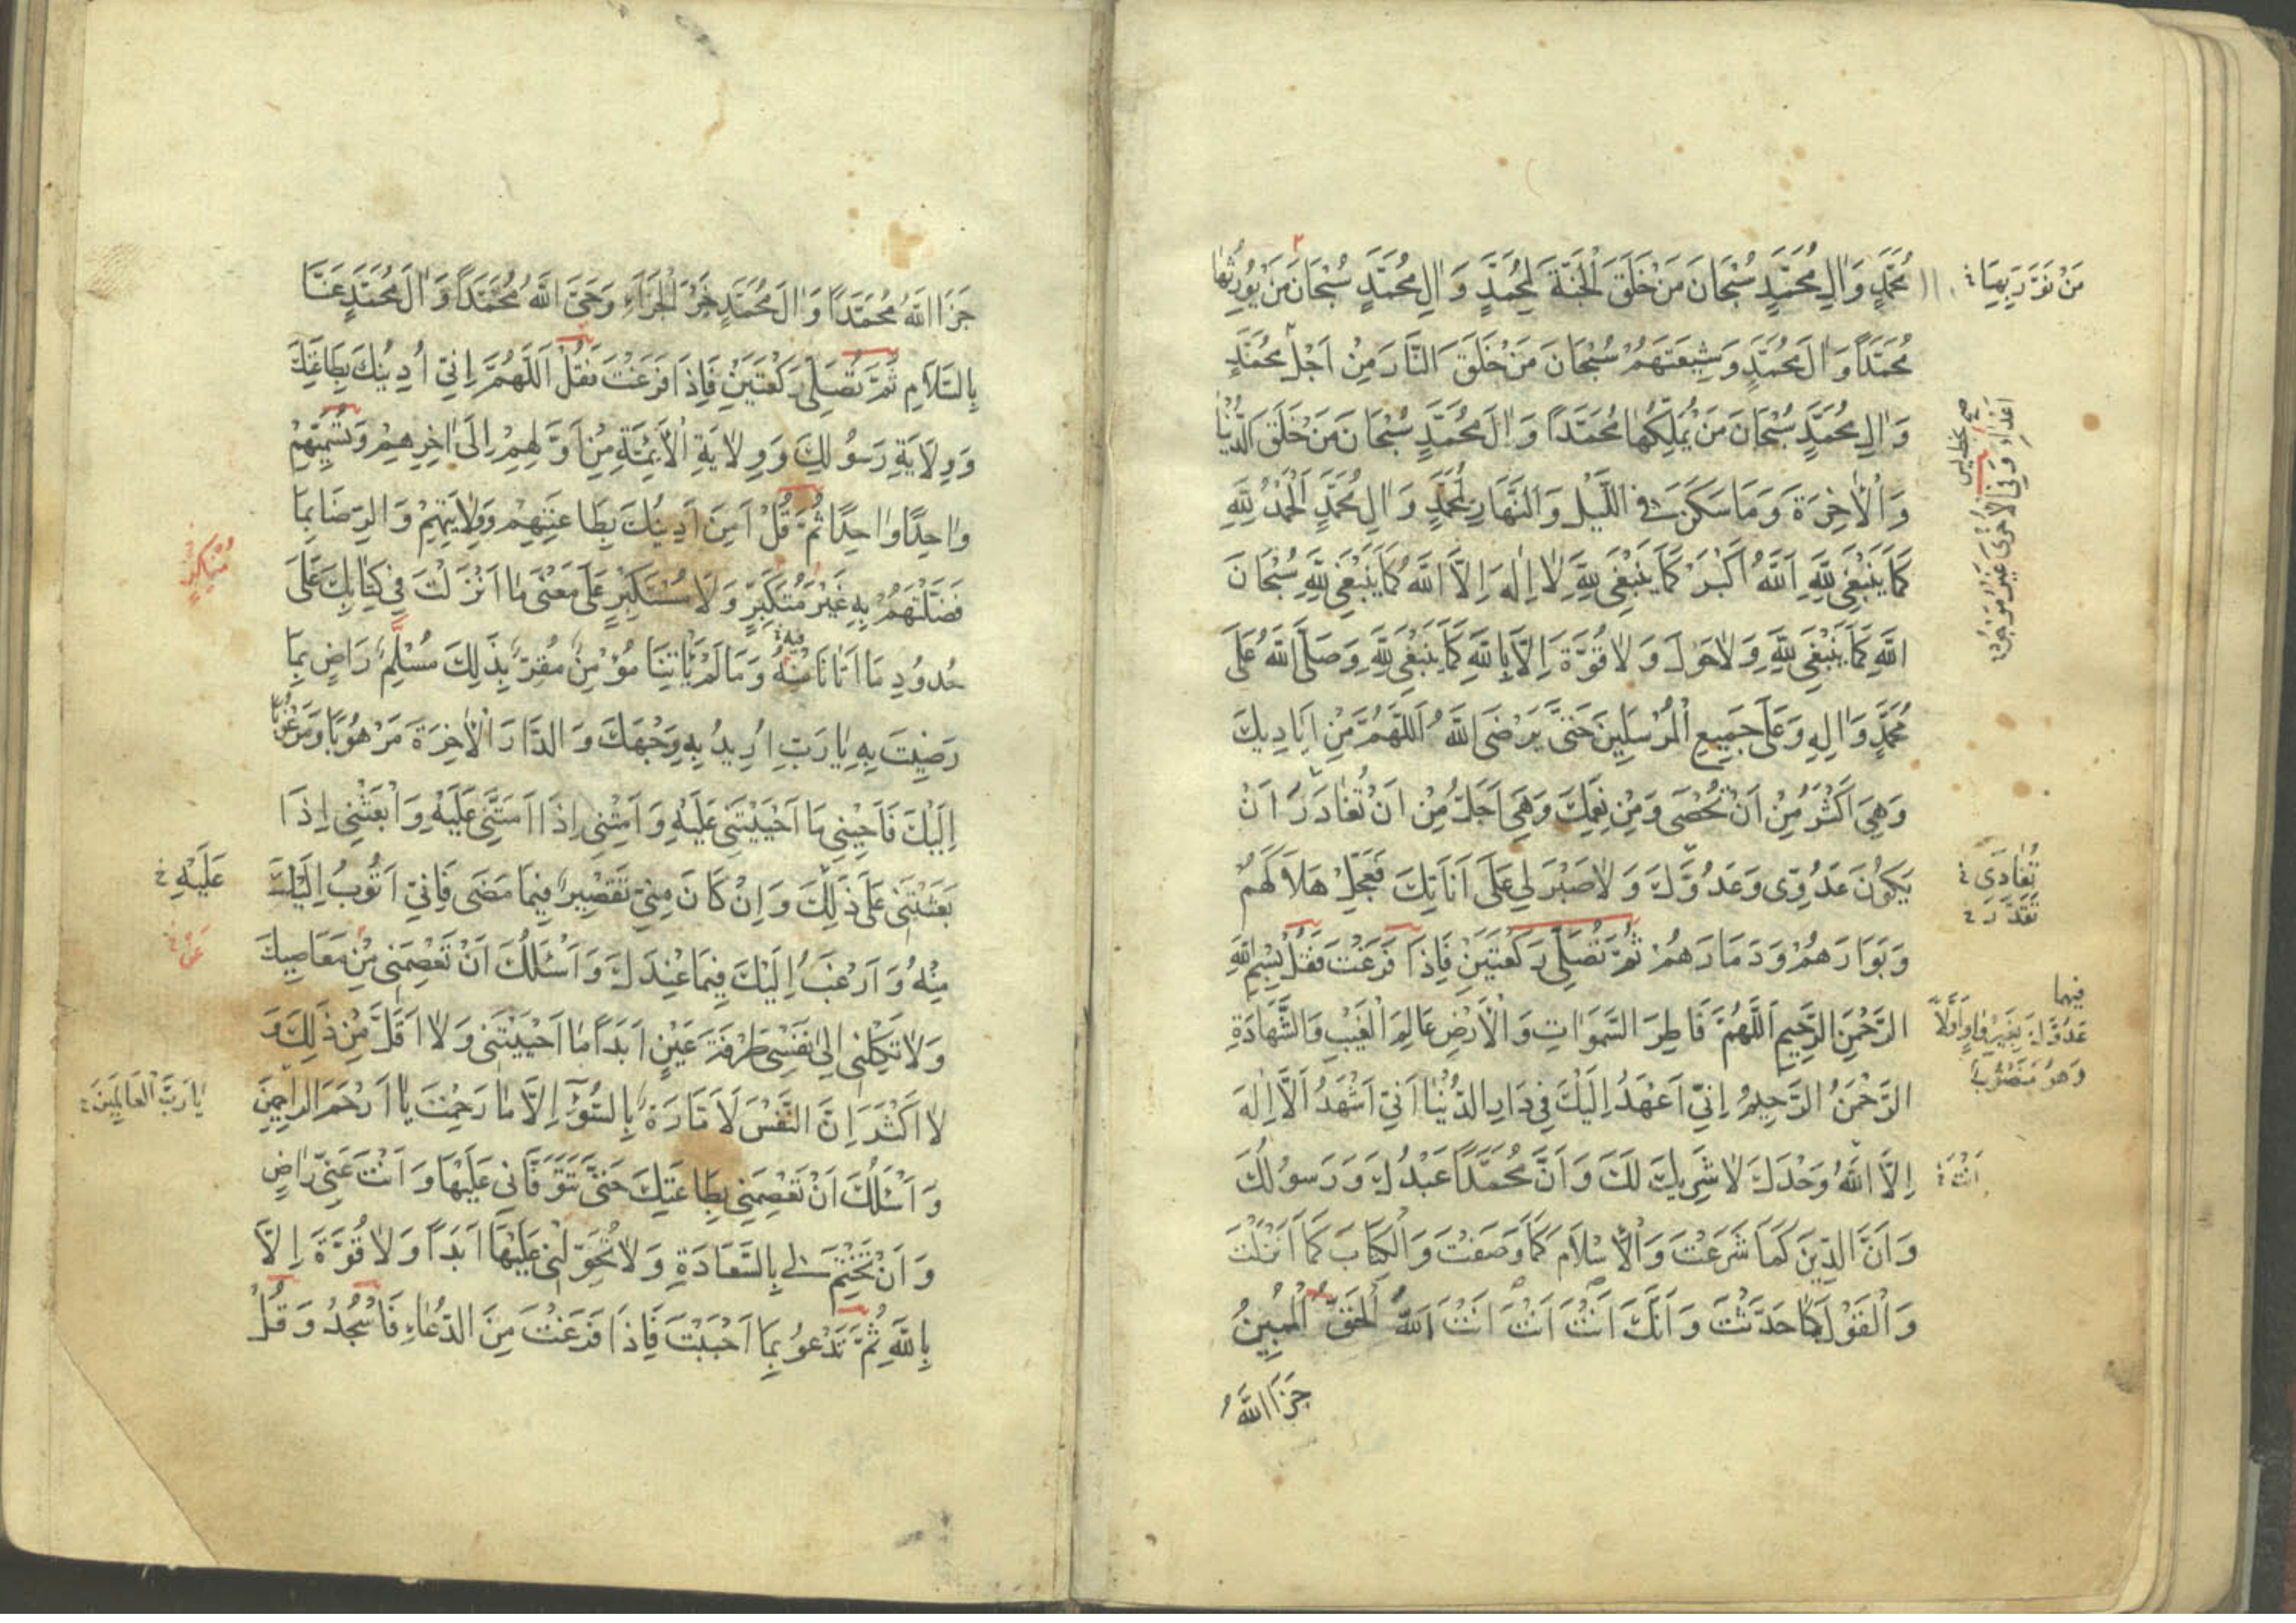 مُحَمَّدٍ وَاٰلِ مُحَمَّدٍ سُبْحَانَ مَنْ خَلَقَ الْجَنَّةَ لِمُحَمَّدٍ وَاٰلِ مُحَمَّدٍ سُبْحَانَ مَنْ يُورِثُهَا
مُحَمَّدًا وَاٰلَ مُحَمَّدٍ وَشِيعَتَهُمْ سُبْحَانَ مَنْ خَلَقَ النَّارَ مِنْ اَجْلِ مُحَمَّدٍ
وَاٰلِ مُحَمَّدٍ سُبْحَانَ مَنْ يُمَلِّكُهَا مُحَمَّدًا وَاٰلَ مُحَمَّدٍ سُبْحَانَ مَنْ خَلَقَ الدُّنْيَا
وَالْاٰخِرَةَ وَمَا سَكَنَ فِي اللَّيْلِ وَالنَّهَارِ لِمُحَمَّدٍ وَاٰلِ مُحَمَّدٍ اَلْحَمْدُ لِلّٰهِ
كَمَا يَنْبَغِي لِلّٰهِ اَللّٰهُ اَكْبَرُ كَمَا يَنْبَغِي لِلّٰهِ لَا اِلٰهَ اِلَّا اللّٰهُ كَمَا يَنْبَغِي لِلّٰهِ سُبْحَانَ
اللّٰهِ كَمَا يَنْبَغِي لِلّٰهِ وَلَا حَوْلَ وَلَا قُوَّةَ اِلَّا بِاللّٰهِ كَمَا يَنْبَغِي لِلّٰهِ وَصَلَّى اللّٰهُ عَلَى
مُحَمَّدٍ وَاٰلِهِ وَعَلَى جَمِيعِ الْمُرْسَلِينَ حَتَّى يَرْضَى اللّٰهُ اَللّٰهُمَّ مِنْ اَيَادِيكَ
وَهِيَ اَكْثَرُ مِنْ اَنْ تُحْصَى وَمِنْ نِعَمِكَ وَهِيَ اَجَلُّ مِنْ اَنْ تُغَادَرَ اَنْ
يَكُونَ عَدُوِّي وَعَدُوَّكَ وَلَا صَبْرَ لِي عَلَى اَنَاتِكَ فَعَجِّلْ هَلَاكَهُمْ
وَبَوَارَهُمْ وَدَمَارَهُمْ ثُمَّ تُصَلِّي رَكْعَتَيْنِ فَاِذَا فَرَغْتَ فَقُلْ بِسْمِ اللّٰهِ
الرَّحْمٰنِ الرَّحِيمِ اَللّٰهُمَّ فَاطِرَ السَّمٰوَاتِ وَالْاَرْضِ عَالِمَ الْغَيْبِ وَالشَّهَادَةِ
الرَّحْمٰنُ الرَّحِيمُ اِنِّي اَعْهَدُ اِلَيْكَ فِي دَارِ الدُّنْيَا اَنِّي اَشْهَدُ اَلَّا اِلٰهَ
اِلَّا اللّٰهُ وَحْدَكَ لَا شَرِيكَ لَكَ وَاَنَّ مُحَمَّدًا عَبْدُكَ وَرَسُولُكَ
وَاَنَّ الدِّينَ كَمَا شَرَعْتَ وَالْاِسْلَامَ كَمَا وَصَفْتَ وَالْكِتَابَ كَمَا اَنْزَلْتَ
وَالْقَوْلَ كَمَا حَدَّثْتَ وَاَنَّكَ اَنْتَ اَنْتَ اَنْتَ اللّٰهُ الْحَقُّ الْمُبِينُ
جَزَا اللّٰهُ
تُعَادَى
تُقَدَّرَ
فيها
عَدُوَّكَ بِغَيْرِ وَاوٍ اَوَّلًا
وَهُوَ مَنْصُوبٌ
اَنْتَ
جَزَا اللّٰهُ مُحَمَّدًا وَاٰلَ مُحَمَّدٍ خَيْرَ الْجَزَاءِ وَحَيَّ اللّٰهُ مُحَمَّدًا وَاٰلَ مُحَمَّدٍ عَنَّا
بِالسَّلَامِ ثُمَّ تُصَلِّي رَكْعَتَيْنِ فَاِذَا فَرَغْتَ فَقُلْ اَللّٰهُمَّ اِنِّي اُدِينُكَ بِطَاعَتِكَ
وَوِلَايَةِ رَسُولِكَ وَوِلَايَةِ الْاَئِمَّةِ مِنْ اَوَّلِهِمْ اِلَى اٰخِرِهِمْ وَتُسَمِّيهِمْ
وَاحِدًا وَاحِدًا ثُمَّ قُلْ اٰمِينَ اَدِينُكَ بِطَاعَتِهِمْ وَوِلَايَتِهِمْ وَالرِّضَا بِمَا
فَضَّلْتَهُمْ بِهِ غَيْرَ مُتَكَبِّرٍ وَلَا مُسْتَكْبِرٍ عَلَى مَعْنَى مَا اَنْزَلْتَ فِي كِتَابِكَ عَلَى
حُدُودِ مَا اَتَانَا مِنْهُ وَمَا لَمْ يَاْتِنَا مُؤْمِنٌ مُقِرٌّ بِذٰلِكَ مُسَلِّمٌ رَاضٍ بِمَا
رَضِيتَ بِهِ يَا رَبِّ اُرِيدُ بِهِ وَجْهَكَ وَالدَّارَ الْاٰخِرَةَ مَرْهُوبًا وَمَرْغُوبًا
اِلَيْكَ فَاَحْيِنِي مَا اَحْيَيْتَنِي عَلَيْهِ وَاَمِتْنِي اِذَا اَمَتَّنِي عَلَيْهِ وَابْعَثْنِي اِذَا
بَعَثْتَنِي عَلَى ذٰلِكَ وَاِنْ كَانَ مِنِّي تَقْصِيرٌ فِيمَا مَضَى فَاِنِّي اَتُوبُ اِلَيْكَ
مِنْهُ وَاَرْغَبُ اِلَيْكَ فِيمَا عِنْدَكَ وَاَسْئَلُكَ اَنْ تَعْصِمَنِي مِنْ مَعَاصِيكَ
وَلَا تَكِلْنِي اِلَى نَفْسِي طَرْفَةَ عَيْنٍ اَبَدًا مَا اَحْيَيْتَنِي وَلَا اَقَلَّ مِنْ ذٰلِكَ وَ
لَا اَكْثَرَ اِنَّ النَّفْسَ لَاَمَّارَةٌ بِالسُّوۤءِ اِلَّا مَا رَحِمْتَ يَا اَرْحَمَ الرَّاحِمِينَ
وَاَسْئَلُكَ اَنْ تَعْصِمَنِي بِطَاعَتِكَ حَتَّى تَتَوَفَّانِي عَلَيْهَا وَاَنْتَ عَنِّي رَاضٍ
وَاَنْ تَخْتِمَ لِي بِالسَّعَادَةِ وَلَا تُحَوِّلْنِي عَلَيْهَا اَبَدًا وَلَا قُوَّةَ اِلَّا
بِاللّٰهِ ثُمَّ تَدْعُو بِمَا اَحْبَبْتَ فَاِذَا فَرَغْتَ مِنَ الدُّعَاءِ فَاسْجُدْ وَقُلْ
عَلَيْهِ
عَنْ
يَا رَبَّ الْعَالَمِينَ